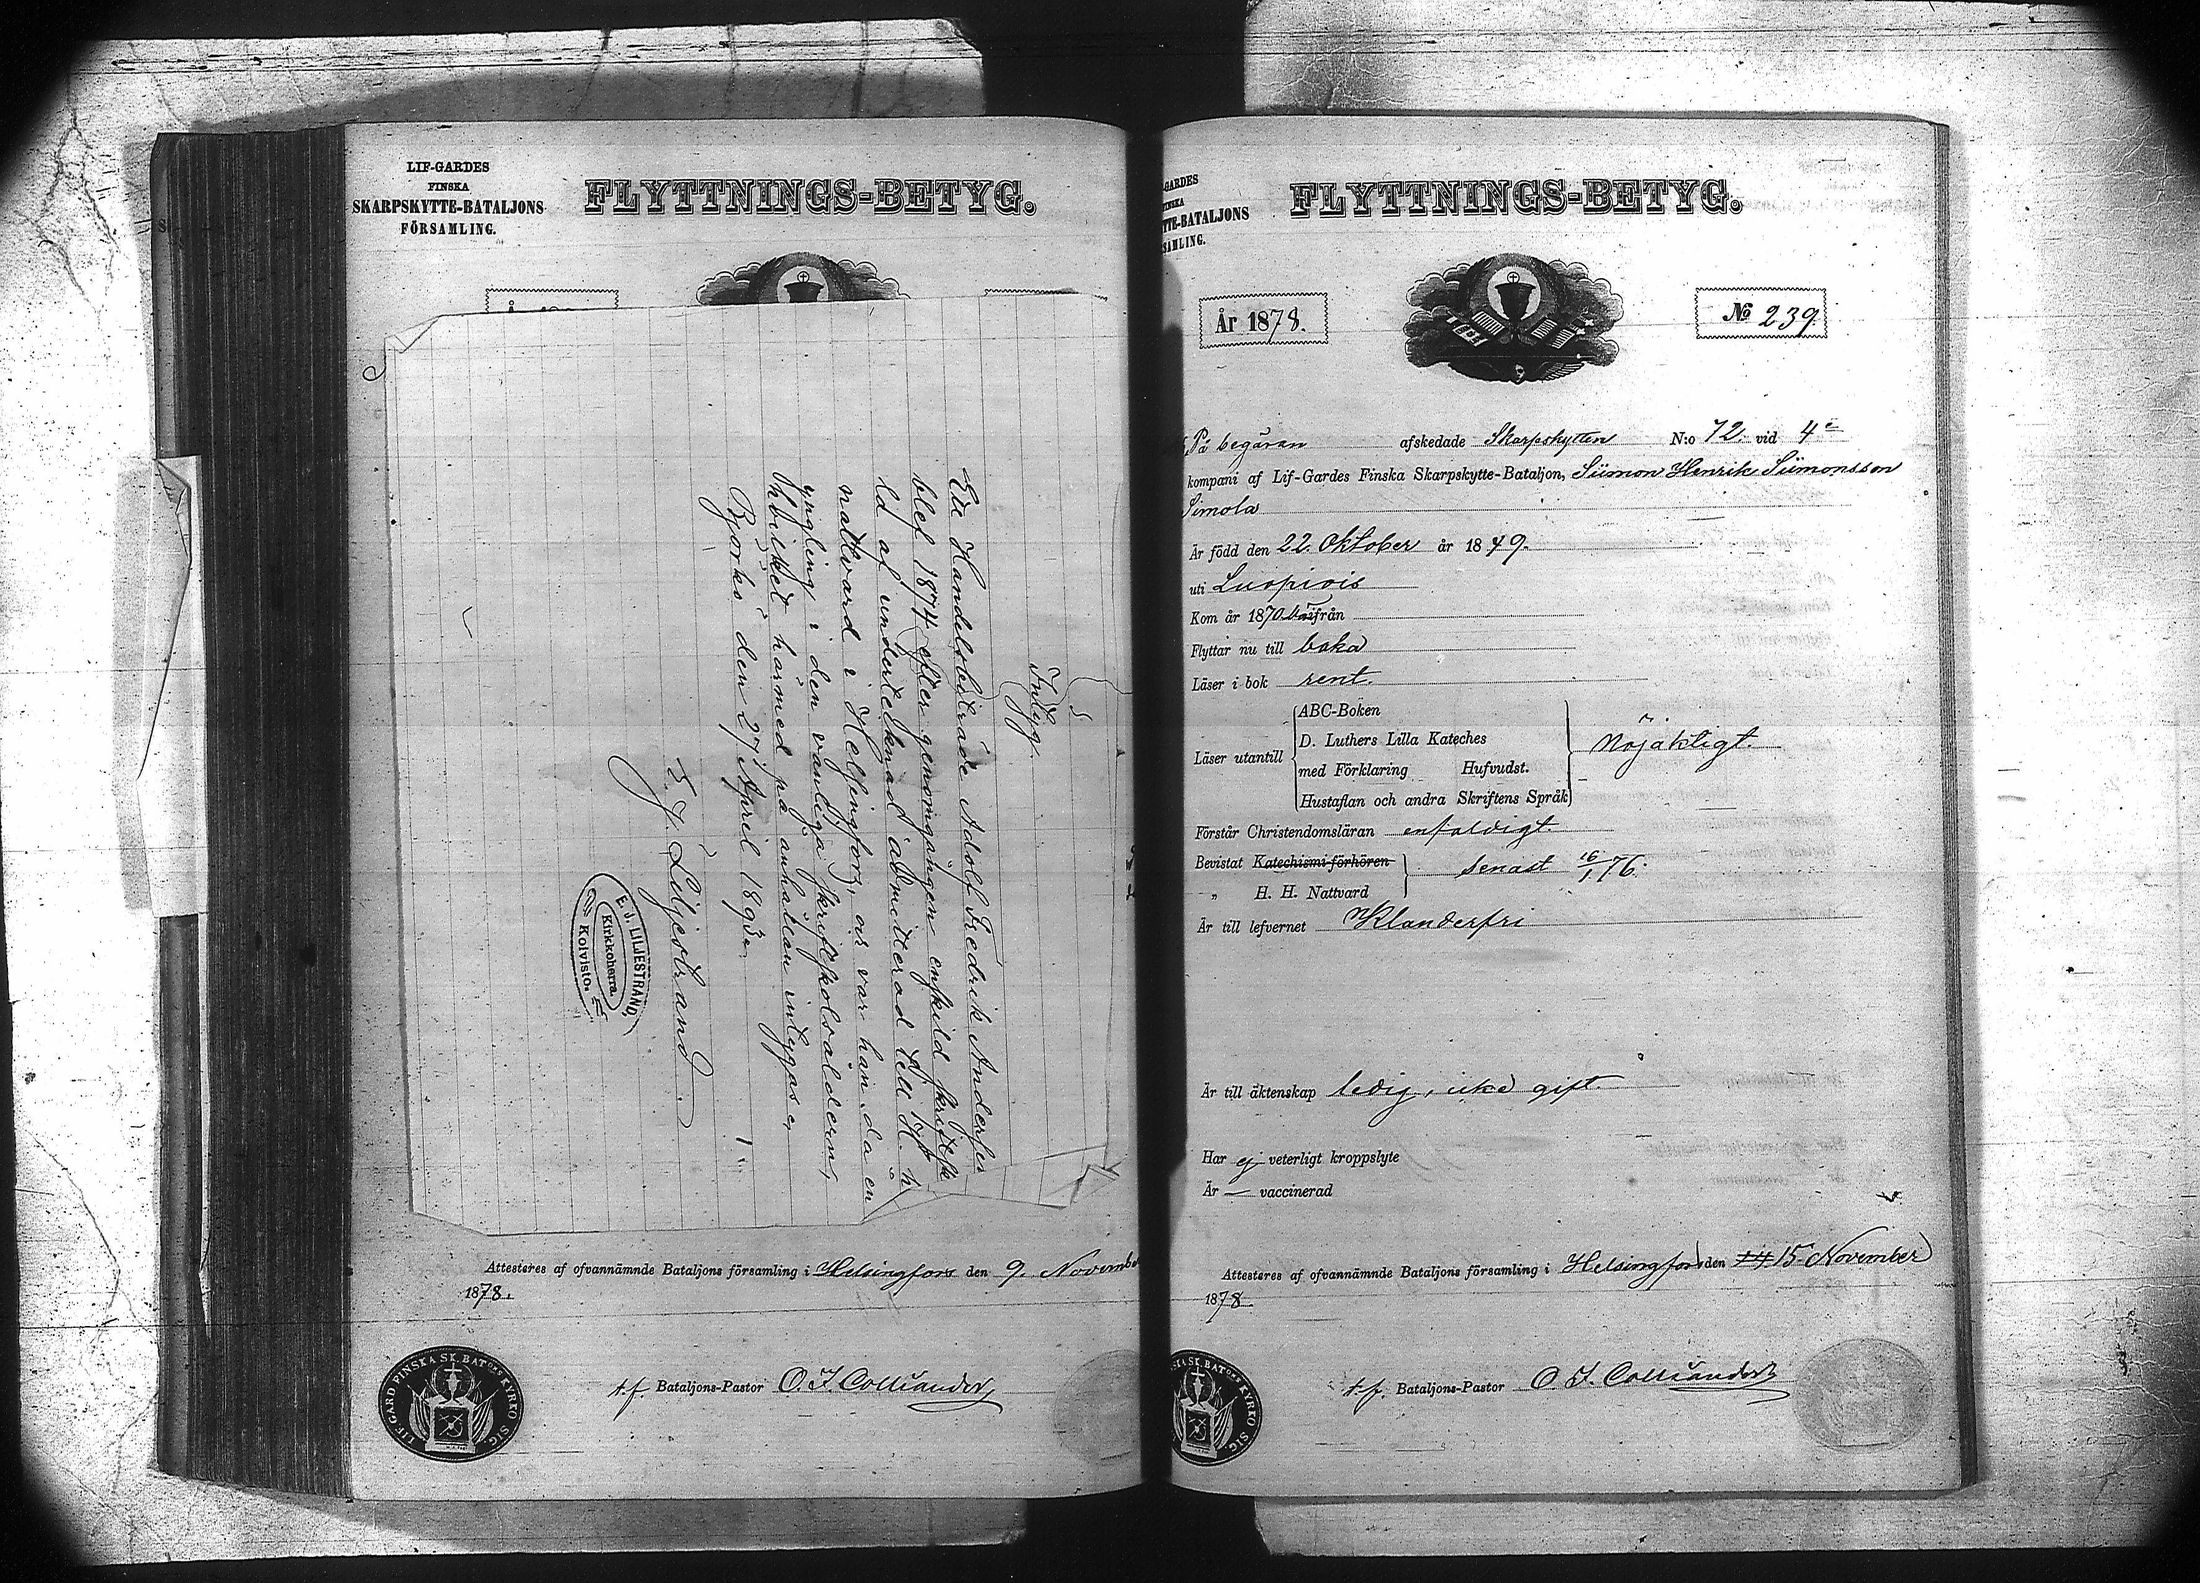 LIF-GARDES
FINSKA
SKARPSKYTTE-BATALJONS
FÖRSAMLING.
FLYTTNINGS-BETYG.
Intyg.
Att Handelsbiträde Adolf Fredrik Anderſen
blef 1874 efter genomgången enſkild ſkriftſk
ld af undertecknad admitterad till H. h.
nattvard i Helſingfors, och var han då en
yngling i den vanliga ſkriftſkolsåldern,
hvilket härmed på anhållan intygas.
Björkö den 27 April 1893.
E. J. Liljestrand.
E. J. LILJESTRAND,
Kirkkoherra.
Koivisto.
Attesteres af ofvannämnde Bataljons församling i Helsingfors den 9. Novembe
1878.
t.f. Bataljons-Pastor O. I. Colliander
LIF.GARD FINSKA SK.BATONS KYRKO SIG.
-GARDES
INSKA
TTE-BATALJONS
SAMLING.
FLYTTNINGS-BETYG.
År 1878.
No 239.
På begäran afskedade Skarpskytten N:o 72. vid 4e
kompani af Lif-Gardes Finska Skarpskytte-Bataljon, Siimon Henrik Siimonsson
Simola
Är född den 22. Oktober år 1849.
uti Luopiois
Kom år 1870 härifrån
Flyttar nu till baka
Läser i bok rent.
Läser utantill
ABC-Boken
D. Luthers Lilla Kateches
med Förklaring Hufvudst.
Hustaflan och andra Skriftens Språk
Nöjaktigt.
Förstår Christendomsläran enfaldigt.
Bevistat Katechismi-förhören
„ H. H. Nattvard
senast 16/1 76.
Är till lefvernet Klanderfri
Är till äktenskap ledig, icke gift.
Har ej veterligt kroppslyte
Är — vaccinerad
Attesteres af ofvannämnde Bataljons församling i Helsingfors den 14 15 November
1878.
t.f. Bataljons-Pastor O. I. Colliander
SKA SK.BATONS KYRKO SIG.